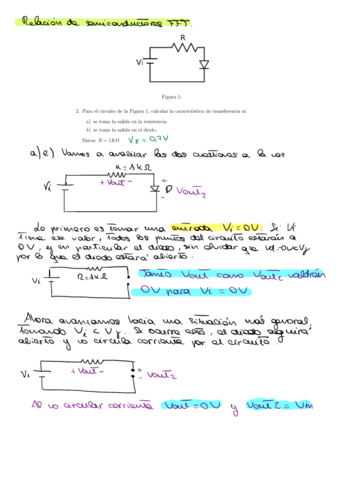 Relación de semiconductores FFT.
R
Vi
Figura 1:
2. Para el circuito de la Figura 1, calcular la característica de transferencia si:
a) se toma la salida en la resistencia.
b) se toma la salida en el diodo
Datos: R = 1KΩ Vγ = 0,7V
Vamos a analizar las dos cuestiones a la vez
R = 1KΩ
+ Vout -
Vi
D Vout2
Lo primero es tomar una entrada Vi = 0V. Si Vi
tiene ese valor, todos los puntos del circuito estarán a
0V, y en particular el diodo, sin olvidar que Vd = 0V < Vγ
por lo que el diodo estará abierto.
R = 1KΩ
Vi
Tanto Vout como Vout2 valdrán
0V para Vi = 0V
Ahora avanzamos hacia una situación más general
tomando Vi < Vγ. Si ocurre esto, el diodo seguirá
abierto y no circula corriente por el circuito
+ Vout -
Vi
Vout2
Al no circular corriente Vout = 0V y Vout2 = Vin